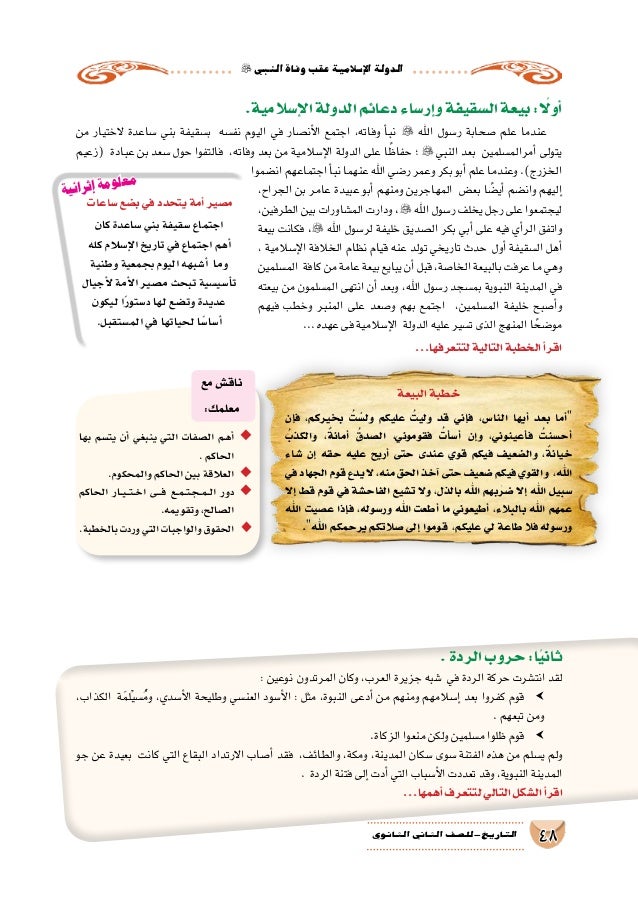 الدولة الإسلامية عقب وفاة النبي ﷺ
أولًا: بيعة السقيفة وإرساء دعائم الدولة الإسلامية.
عندما علم صحابة رسول الله ﷺ نبأ وفاته، اجتمع الأنصار في اليوم نفسه بسقيفة بني ساعدة لاختيار من
يتولى أمر المسلمين بعد النبي ﷺ ؛ حفاظًا على الدولة الإسلامية من بعد وفاته، فالتفوا حول سعد بن عبادة (زعيم
الخزرج). وعندما علم أبو بكر وعمر رضي الله عنهما نبأ اجتماعهم انضموا
إليهم وانضم أيضًا بعض المهاجرين ومنهم أبو عبيدة عامر بن الجراح،
ليجتمعوا على رجل يخلف رسول الله ﷺ، ودارت المشاورات بين الطرفين،
واتفق الرأي فيه على أبي بكر الصديق خليفة لرسول الله ﷺ، فكانت بيعة
أهل السقيفة أول حدث تاريخي تولد عنه قيام نظام الخلافة الإسلامية ،
وهي ما عرفت بالبيعة الخاصة، قبل أن يبايع بيعة عامة من كافة المسلمين
في المدينة النبوية بمسجد رسول الله، وبعد أن انتهى المسلمون من بيعته
وأصبح خليفة المسلمين، اجتمع بهم وصعد على المنبر وخطب فيهم
موضحًا المنهج الذى تسير عليه الدولة الإسلامية فى عهده ...
اقرأ الخطبة التالية لتتعرفها...
معلومة إثرائية
مصير أمة يتحدد في بضع ساعات
اجتماع سقيفة بني ساعدة كان
أهم اجتماع في تاريخ الإسلام كله
وما أشبهه اليوم بجمعية وطنية
تأسيسية تبحث مصير الأمة لأجيال
عديدة وتضع لها دستورًا ليكون
أساسًا لحياتها في المستقبل.
خطبة البيعة
"أما بعد أيها الناس، فإني قد وليتُ عليكم ولستُ بخيركم، فإن
أحسنتُ فأعينوني، وإن أسأتُ فقوموني، الصدقُ أمانةٌ، والكذبُ
خيانةٌ، والضعيف فيكم قوي عندى حتى أريح عليه حقه إن شاء
الله، والقوي فيكم ضعيف حتى آخذ الحق منه، لا يدع قوم الجهاد في
سبيل الله إلا ضربهم الله بالذل، ولا تشيع الفاحشة في قوم قط إلا
عمهم الله بالبلاء، أطيعوني ما أطعت الله ورسوله، فإذا عصيت الله
ورسوله فلا طاعة لي عليكم، قوموا إلى صلاتكم يرحمكم الله".
ناقش مع
معلمك:
أهم الصفات التي ينبغي أن يتسم بها
الحاكم .
العلاقة بين الحاكم والمحكوم.
دور المجتمع فى اختيار الحاكم
الصالح، وتقويمه.
الحقوق والواجبات التي وردت بالخطبة.
ثانيًا: حروب الردة .
لقد انتشرت حركة الردة في شبه جزيرة العرب، وكان المرتدون نوعين :
قوم كفروا بعد إسلامهم ومنهم من أدعى النبوة، مثل : الأسود العنسي وطليحة الأسدي، ومُسيْلمَة الكذاب،
ومن تبعهم .
قوم ظلوا مسلمين ولكن منعوا الزكاة.
ولم يسلم من هذه الفتنة سوى سكان المدينة، ومكة، والطائف، فقد أصاب الارتداد البقاع التي كانت بعيدة عن جو
المدينة النبوية، وقد تعددت الأسباب التي أدت إلى فتنة الردة .
اقرأ الشكل التالي لتتعرف أهمها...
٤٨ التاريخ - للصف الثانى الثانوى